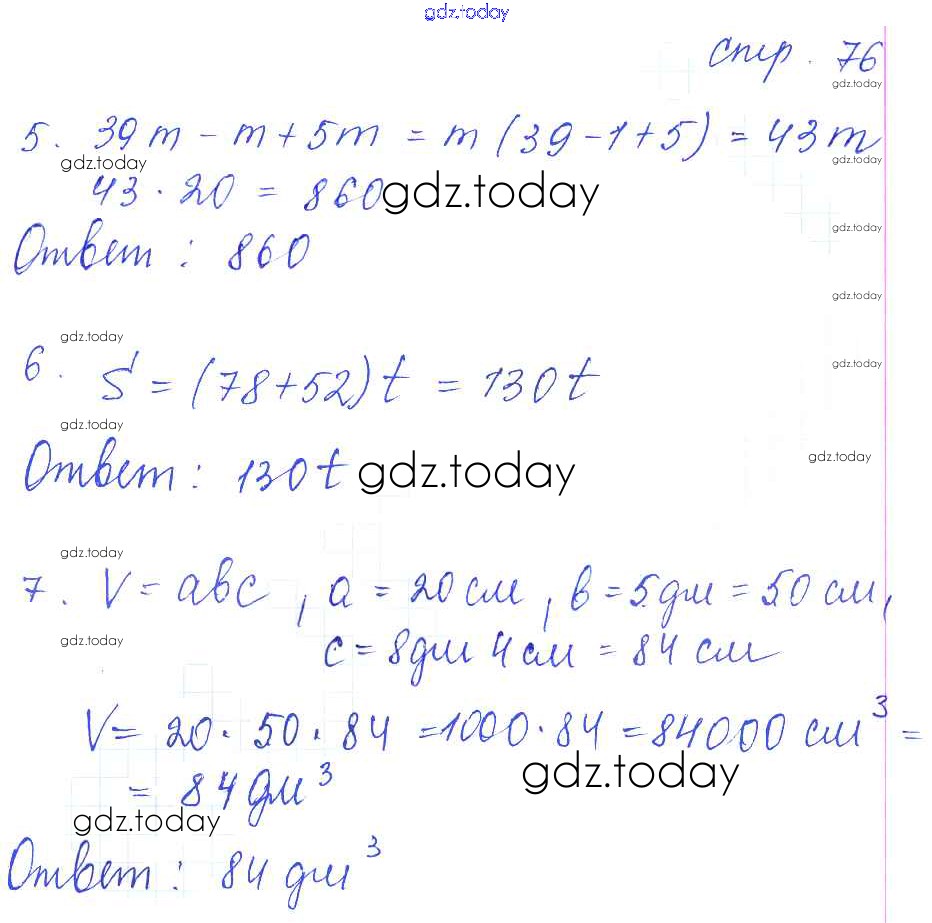 gdz.today
стр. 76
gdz.today
5. 39m - m + 5m = m (39 - 1 + 5) = 43m
gdz.today gdz.today
43 · 20 = 860 gdz.today
Ответ: 860 gdz.today
gdz.today
gdz.today
6. S = (78+52)t = 130t gdz.today
gdz.today
Ответ: 130t gdz.today gdz.today
gdz.today
7. V = abc, a = 20 см, b = 5 дм = 50 см,
gdz.today c = 8 дм 4 см = 84 см
V = 20 · 50 · 84 = 1000 · 84 = 84000 см³ =
= 84 дм³ gdz.today
gdz.today
Ответ: 84 дм³